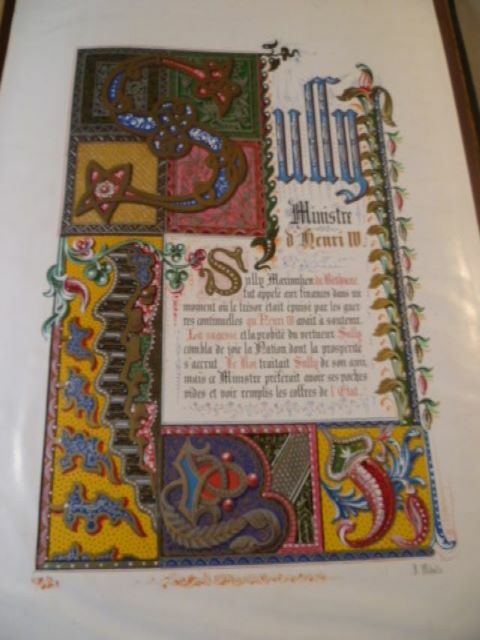 Sully
Ministre
d'Henri IV.
Sully Maximilien de Béthune,
fut appelé aux finances dans un
moment où le trésor était épuisé par les guer
res continuelles qu'Henri IV avait à soutenir.
La sagesse et la probité du vertueux Sully
combla de joie la Nation dont la prospérité
s'accrut. Le Roi traitait Sully de son ami,
mais ce Ministre préférait avoir ses poches
vides et voir remplis les coffres de l'État.